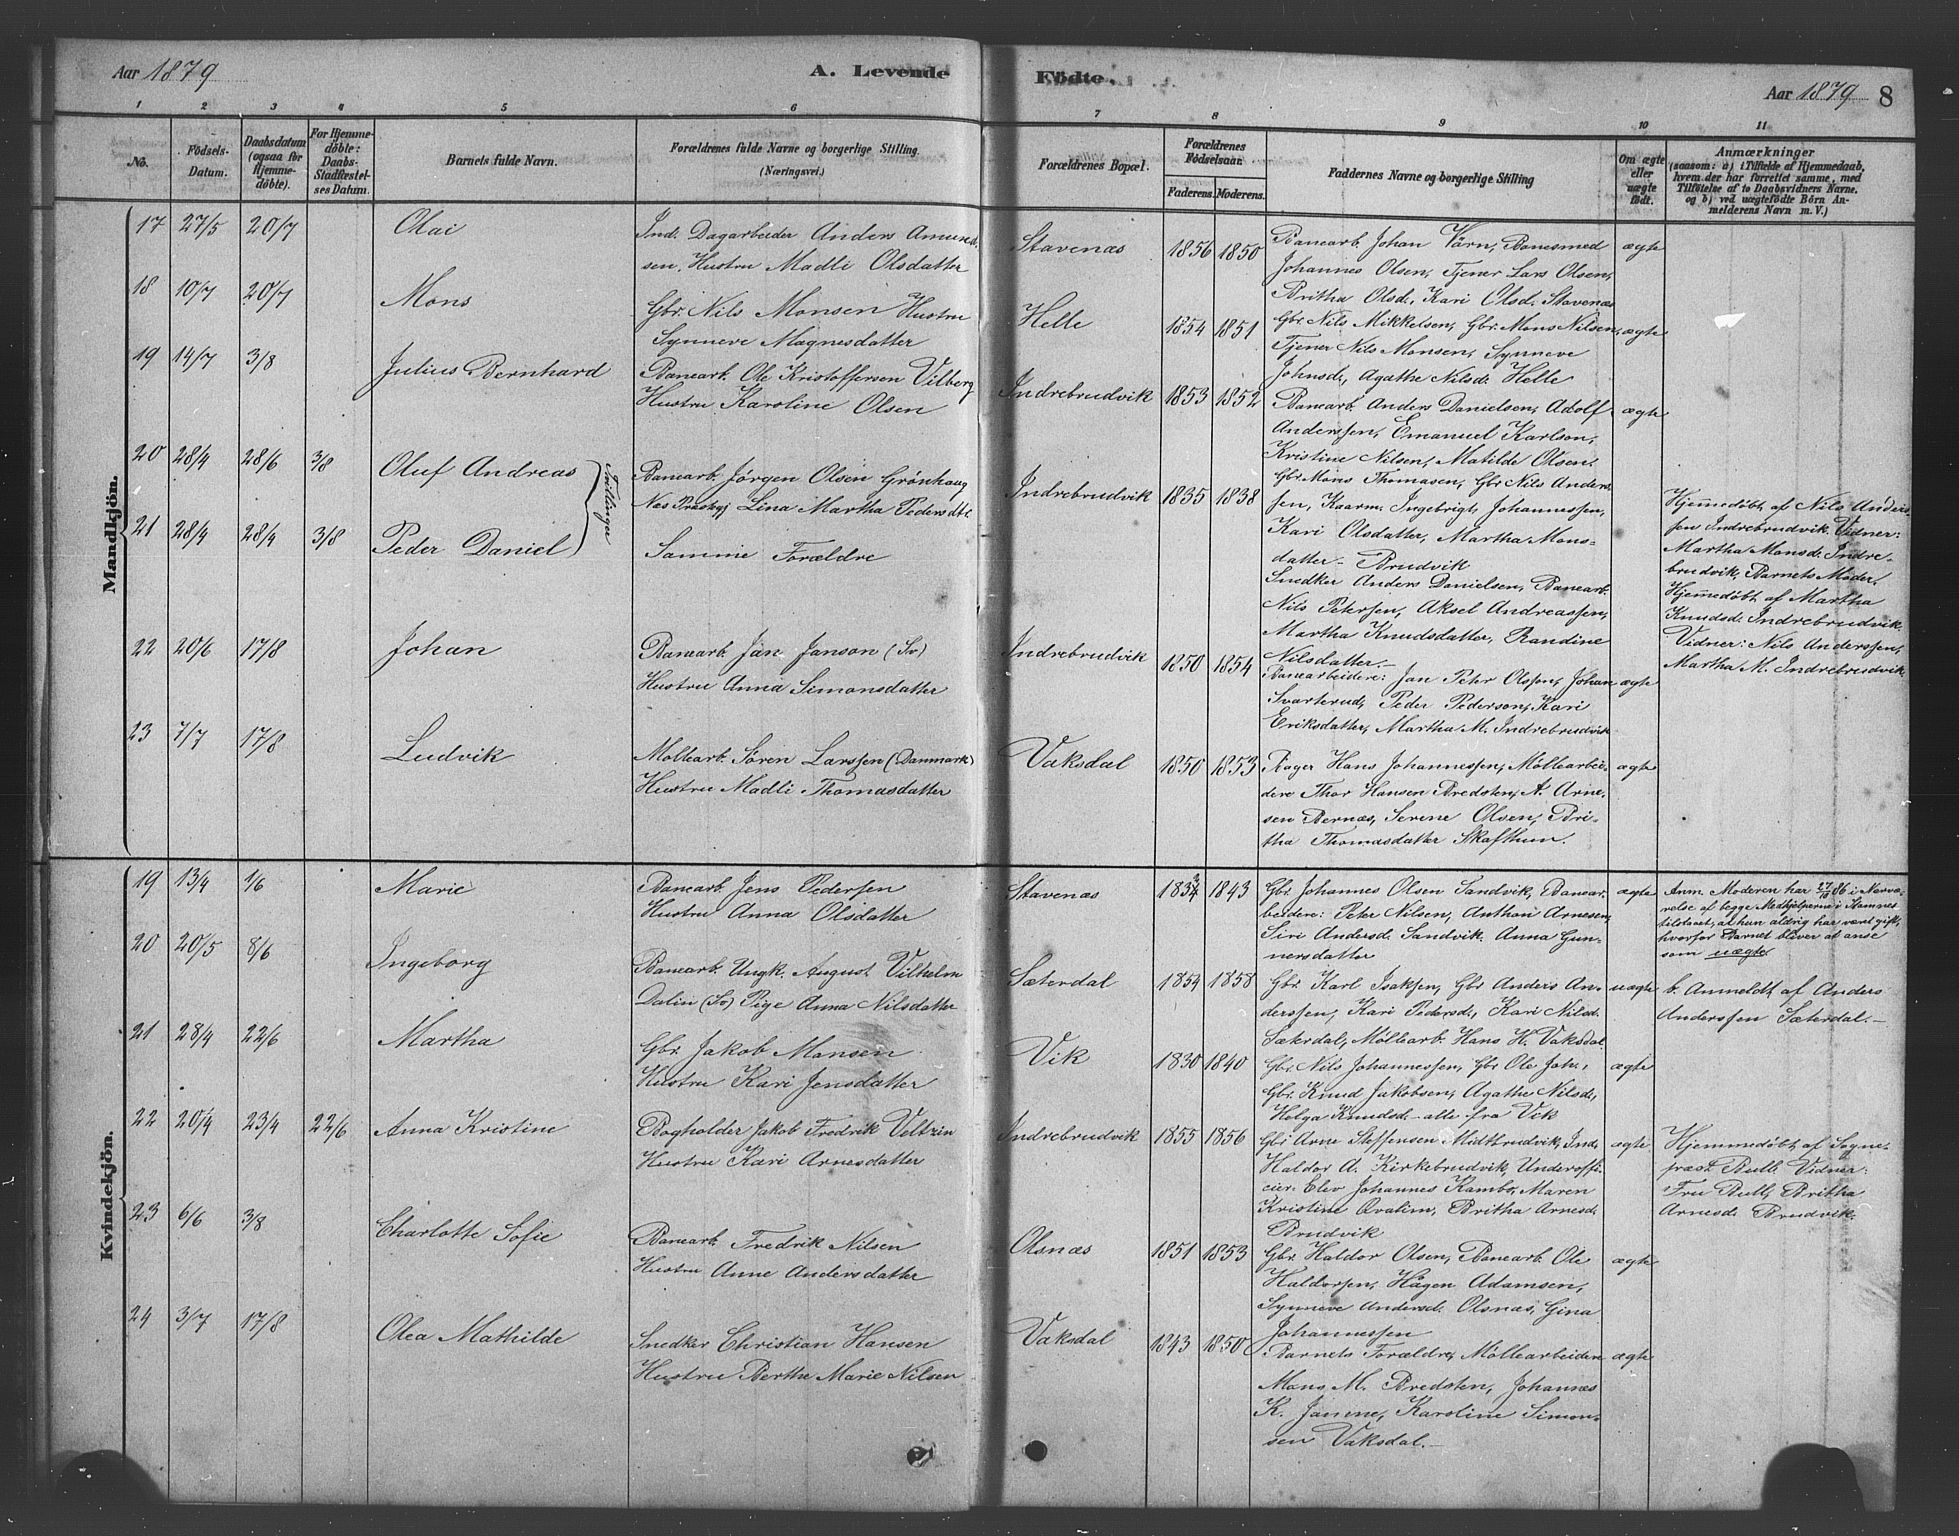 Aar 1879
A. Levende
Födte.
Aar 1879
8
1 2 3 4 5 6 7 8 9 10 11
No.
Födsels-Datum.
Daabsdatum (ogsaa for Hjemmedöbte).
For Hjemmedöbte: Daabs-Stadfæstelses Datum.
Barnets fulde Navn.
Forældrenes fulde Navne og borgerlige Stilling.
(Næringsvei.)
Forældrenes Bopæl.
Forældrenes Födselsaar.
Faderens. Moderens.
Faddernes Navne og borgerlige Stilling
Om ægte eller uægte födt.
Anmærkninger
(saasom: a) i Tilfælde af Hjemmedaab,
hvem der har forrettet samme, med
Tilföielse af to Daabsvidners Navne.
og b) ved uægtefödte Börn An-
melderens Navn m. V.)
Mandkjön.
17 27/5 20/7 Olai
Ind. Dagarbeider Anders Amund-
sen, Hustru Madli Olsdatter
Stavenæs 1856 1850
Banearb. Johan Värn, Banesmed
Johannes Olsen, Tjener Lars Olsen,
Britha Olsd., Kari Olsd. Stavenæs
ægte
18 10/7 20/7 Mons
Gbr. Nils Monsen Hustru
Synneve Magnesdatter
Helle 1854 1851
Gbr. Nils Mikkelsen, Gbr. Mons Nilsen,
Tjener Nils Monsen, Synneve
Johnsd., Agathe Nilsd. Helle
ægte
19 14/7 3/8 Julius Bernhard
Banearb. Ole Kristoffersen Vilberg
Hustru Karoline Olsen
Indrebrudvik 1853 1852
Banearb. Anders Danielsen, Adolf
Anderssen, Emanuel Karlson,
Kristine Nilsen, Matilde Olsen.
ægte
20 28/4 28/6 3/8 Oluf Andreas
Tvillinger
Banearb. Jørgen Olsen Grønhaug
Næs Præstgj. Lina Martha Pedersdtr
Indrebrudvik 1835 1838
Gbr. Mons Thomasen, Gbr. Nils Anders-
sen, Kaarm. Ingebrigt Johannessen,
Kari Olsdatter, Martha Mons-
datter – Brudvik
Hjemmedøbt af Nils Anders-
sen Indrebrudvik. Vidner:
Martha Monsd. Indre-
brudvik, Barnets Moder.
21 28/4 28/4 3/8 Peder Daniel
Samme Forældre
Snedker Anders Danielsen, Banearb.
Nils Petersen, Aksel Andreassen,
Martha Knudsdatter, Randine
Nilsdatter.–
Hjemmedøbt af Martha
Knudsd. Indrebrudvik.
Vidner: Nils Anderssen,
Martha M. Indrebrudvik
22 20/6 17/8 Johan
Banearb. Jan Janson (Sv)
Hustru Anna Simonsdatter
Indrebrudvik 1850 1854
Banearbeidere: Jan Peter Olssen, Johan
Svarterud, Peder Pederson, Kari
Eriksdatter, Martha M. Indrebrudvik
ægte
23 7/7 17/8 Ludvik
Møllearb. Søren Larssen (Danmark)
Hustru Madli Thomasdatter
Vaksdal 1850 1853
Røger Hans Johannessen, Møllearbei-
dere Thor Hansen Bredsten, A. Arne-
sen Bernæs, Serene Olsen, Bri-
tha Thomasdatter Skafthun.
ægte
Kvindekjön.
19 13/4 1/6 Marie
Banearb. Jens Pedersen
Hustru Anna Olsdatter
Stavenæs 1834 1843
Gbr. Johannes Olsen Sandvik, Banear-
beidere: Peter Nilsen, Anthon Arnesen,
Siri Andersd. Sandvik. Anna Gun-
nersdatter
ægte
Anm. Moderen har 27/10 86 i Nærvæ-
relse af begge Medhjelperne i Stamnes
tilstaaet, at hun aldrig har været gift,
hvorfor Barnet bliver at anse
som uægte.
20 20/5 8/6 Ingeborg
Banearb. Ungk. August Vilhelm
Dalin (Sv) Pige Anna Nilsdatter
Sæterdal 1854 1858
Gbr. Karl Isaksen, Gbr Anders An-
derssen, Kari Pedersd., Kari Nilsd.
Sæterdal, Møllearb. Hans H. Vaksdal
uægte
b. Anmeldt af Anders
Anderssen Sæterdal.–
21 28/4 22/6 Martha
Gbr. Jakob Monsen
Hustru Kari Jensdatter
Vik 1830 1840
Gbr. Nils Johannessen, Gbr. Ole Joh.,
Gbr. Knud Jakobsen, Agathe Nilsd.,
Helga Knudsd – alle fra Vik
ægte
22 20/4 23/4 22/6 Anna Kristine
Bogholder Jakob Fredrik Veltzin
Hustru Kari Arnesdatter
Indrebrudvik 1855 1856
Gbr. Arne Steffensen Midtbrudvik, Ind.
Haldor A. Kirkebrudvik, Underoffi-
cier. Elev Johannes Kambo, Maren
Kristine Qvalim, Britha Arnesd.
Brudvik
ægte
Hjemmedøbt af Sogne-
præst Bull, Vidner:
Fru Bull, Britha
Arnesd. Brudvik.
23 6/6 3/8 Charlotte Sofie
Banearb. Fredrik Nilsen
Hustru Anne Andersdatter
Olsnæs 1851 1853
Gbr. Haldor Olsen, Banearb. Ole
Haldorsen, Hågen Adamsen,
Synneve Andersd. Olsnæs, Gina
Johannessen
ægte
24 3/7 17/8 Olea Mathilde
Snedker Christian Hansen
Hustru Berthe Marie Nilsen
Vaksdal 1843 1850
Barnets Forældre, Møllearbeidere
Mons M. Bredsten, Johannes
K. Jamne, Karoline Simon-
sen Vaksdal.–
ægte